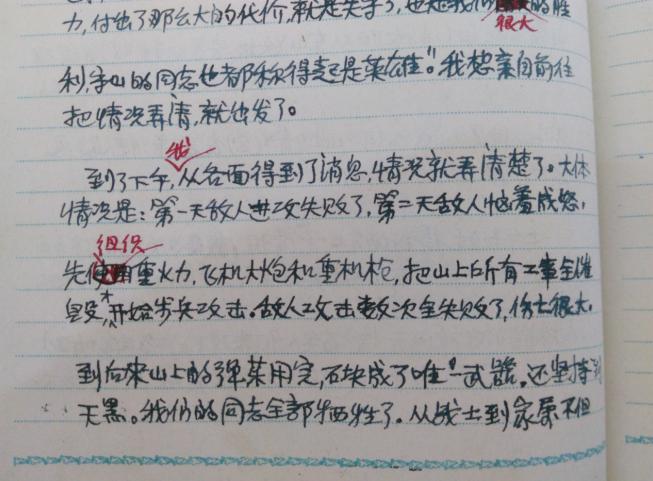 力,付出了那么大的代价,就是失守了,也是我们的胜
很大
利,守山的同志也都称得起是英雄。"我想亲自前往
把情况弄清,就出发了。
我
到了下午,从各面得到了消息,情况就弄清楚了。大体
情况是:第一天敌人进攻失败了,第二天敌人恼羞成怒,
组织
先使用重火力,飞机大炮和重机枪,把山上所有工事全催
毁,才开始步兵攻击。敌人攻击数次全失败了,伤亡很大。
到后来山上的弹药用完,石块成了唯一武器。还坚持到
天黑。我们的同志全部牺牲了。从战士到家属不但